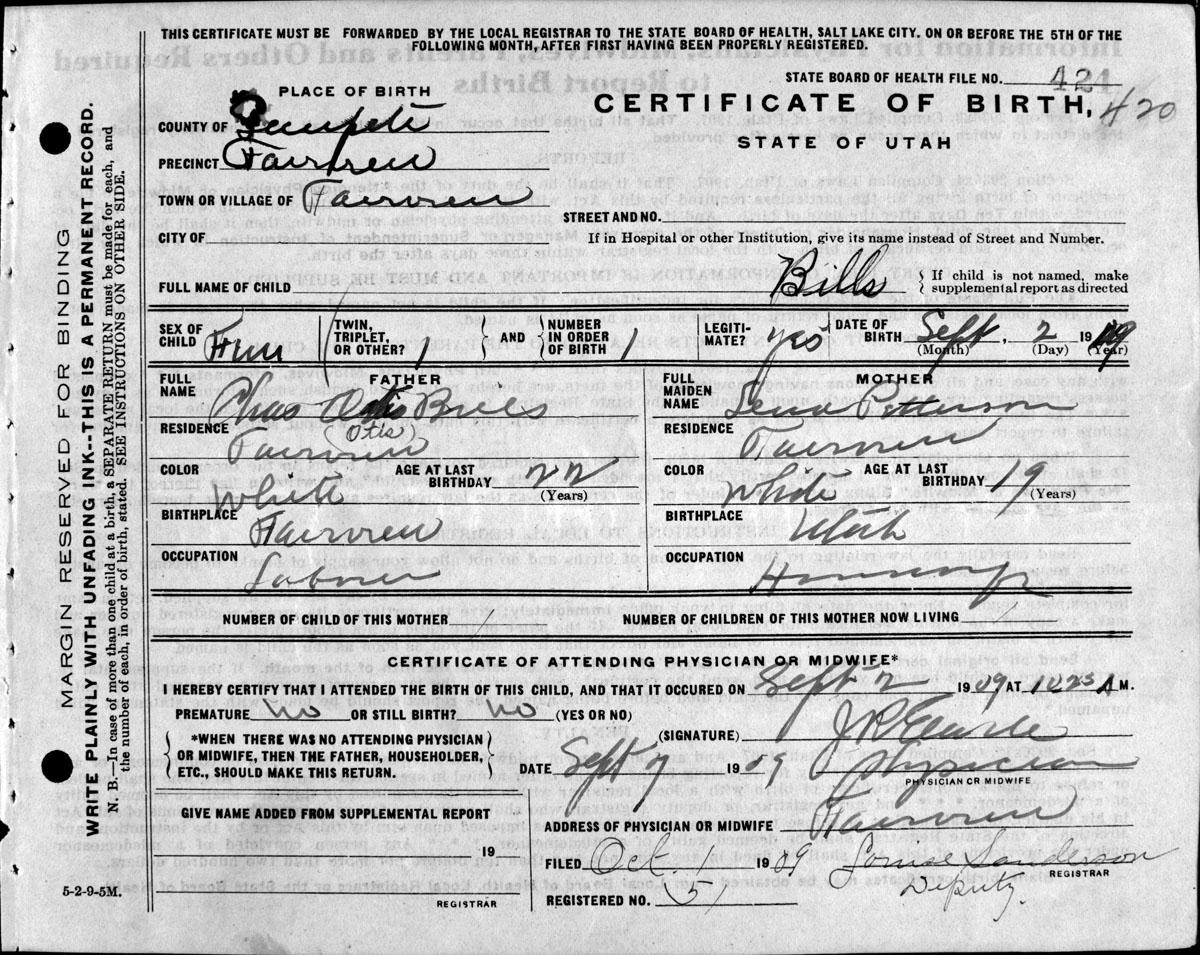 THIS CERTIFICATE MUST BE FORWARDED BY THE LOCAL REGISTRAR TO THE STATE BOARD OF HEALTH, SALT LAKE CITY. ON OR BEFORE THE 5TH OF THE
FOLLOWING MONTH, AFTER FIRST HAVING BEEN PROPERLY REGISTERED.
STATE BOARD OF HEALTH FILE NO. 424
PLACE OF BIRTH
CERTIFICATE OF BIRTH, 420
STATE OF UTAH
COUNTY OF Sanpete
PRECINCT Fairview
TOWN OR VILLAGE OF Fairview
STREET AND NO.
CITY OF
If in Hospital or other Institution, give its name instead of Street and Number.
FULL NAME OF CHILD Bills
If child is not named, make
supplemental report as directed
SEX OF CHILD
TWIN, TRIPLET, OR OTHER? 1
AND
NUMBER IN ORDER OF BIRTH 1
LEGITIMATE? yes
DATE OF BIRTH Sept, 2 19
(Month) (Day) (Year)
FATHER
FULL NAME Chas Otis Bills
(Otis)
RESIDENCE Fairview
COLOR White
AGE AT LAST BIRTHDAY 22
(Years)
BIRTHPLACE Fairview
OCCUPATION Laborer
MOTHER
FULL MAIDEN NAME Lena Petterson
RESIDENCE Fairview
COLOR White
AGE AT LAST BIRTHDAY 19
(Years)
BIRTHPLACE Utah
OCCUPATION
NUMBER OF CHILD OF THIS MOTHER 1
NUMBER OF CHILDREN OF THIS MOTHER NOW LIVING
CERTIFICATE OF ATTENDING PHYSICIAN OR MIDWIFE*
I HEREBY CERTIFY THAT I ATTENDED THE BIRTH OF THIS CHILD, AND THAT IT OCCURED ON Sept 2 1909 AT 1025 A M.
PREMATURE no OR STILL BIRTH? no (YES OR NO)
(SIGNATURE)
*WHEN THERE WAS NO ATTENDING PHYSICIAN
OR MIDWIFE, THEN THE FATHER, HOUSEHOLDER,
ETC., SHOULD MAKE THIS RETURN.
DATE Sept 7 1909
Physician
PHYSICIAN OR MIDWIFE
GIVE NAME ADDED FROM SUPPLEMENTAL REPORT
19
REGISTRAR
ADDRESS OF PHYSICIAN OR MIDWIFE Fairview
FILED Oct. 1 1909 Louise Sanderson
REGISTRAR
Deputy
REGISTERED NO. 51
MARGIN RESERVED FOR BINDING
WRITE PLAINLY WITH UNFADING INK--THIS IS A PERMANENT RECORD.
N. B.—In case of more than one child at a birth, a SEPARATE RETURN must be made for each, and
the number of each, in order of birth, stated. SEE INSTRUCTIONS ON OTHER SIDE.
5-2-9-5M.